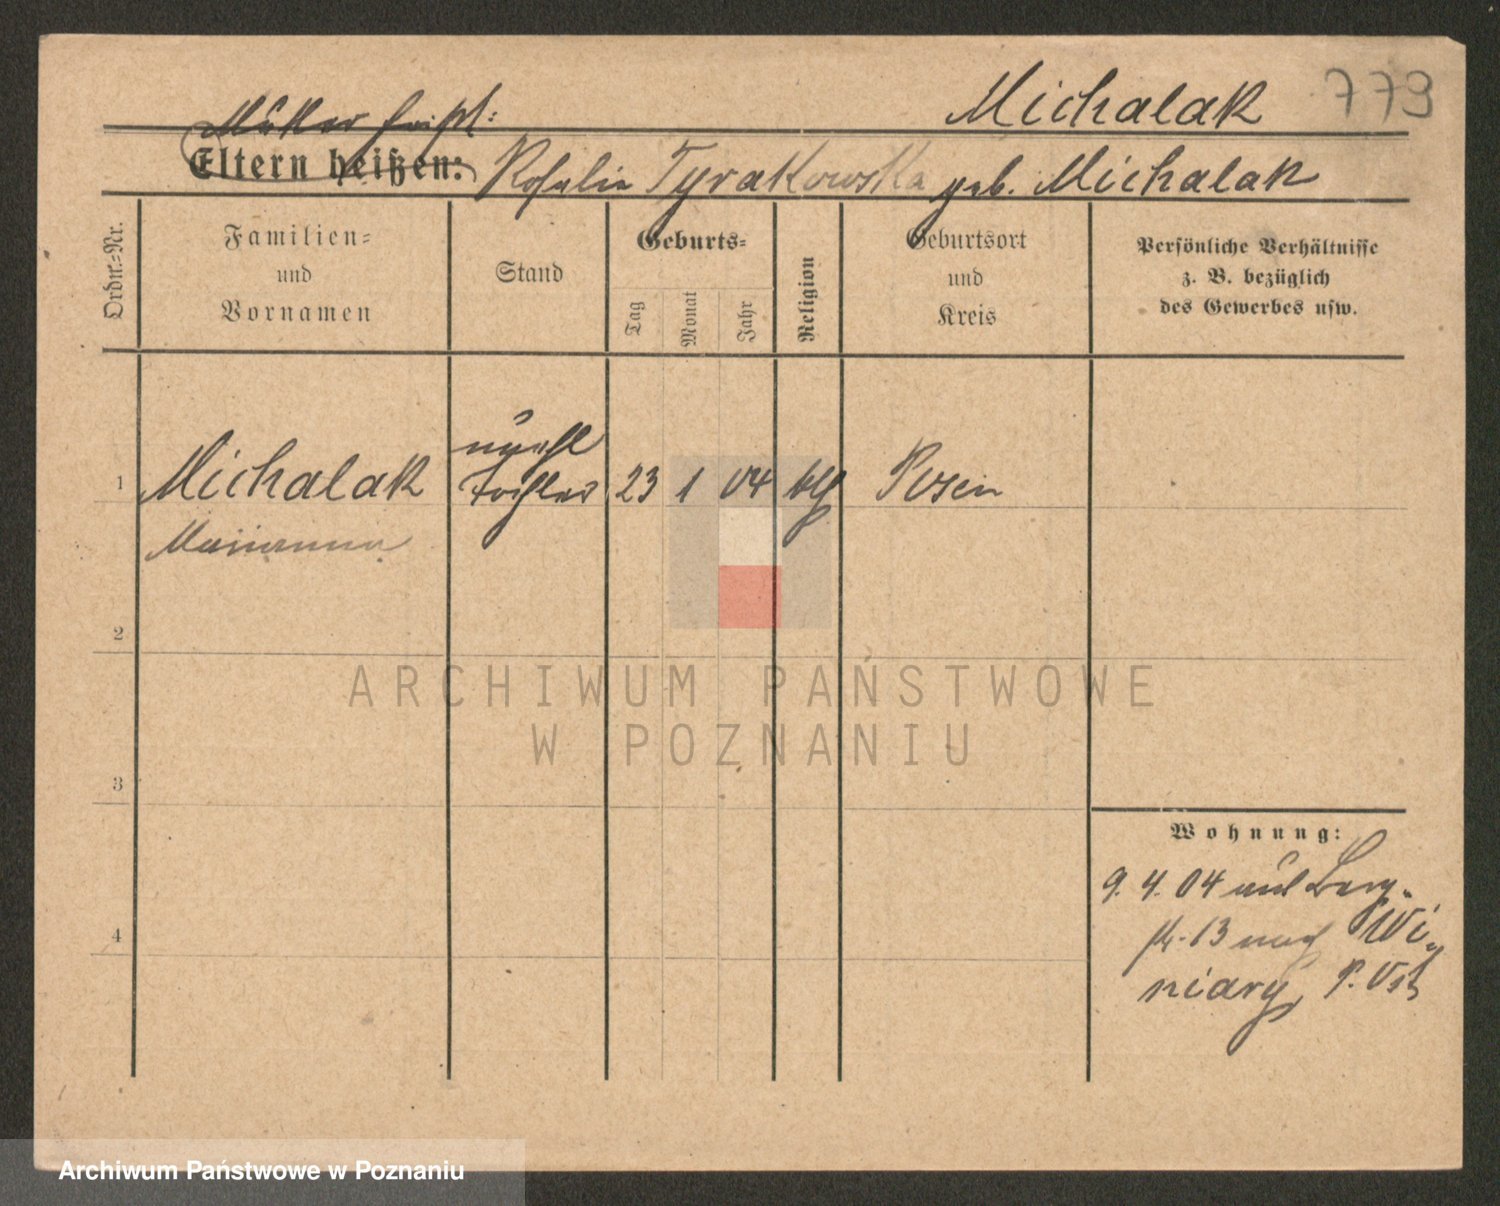 Michalak 779
Mutter heißt:
Eltern heißen: Rosalie Tyrakowska geb. Michalak
Ordn.-Nr.
Familien-
und
Vornamen
Stand
Geburts-
Tag
Monat
Jahr
Religion
Geburtsort
und
Kreis
Persönliche Verhältnisse
z. B. bezüglich
des Gewerbes usw.
unehl
1 Michalak Tochter 23 1 04 kth Posen
Marianna
2
3
4
Wohnung:
9. 4. 04 aus Berg-
str. 13 nach Wi-
niary, P. Ost
ARCHIWUM PAŃSTWOWE
W POZNANIU
Archiwum Państwowe w Poznaniu